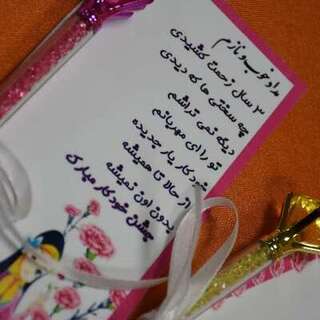 مداد خوب و نازم
۳ سال زحمت کشیدی
چه سختی ها که دیدی
دیگه نمی تراشم
تو را ای مهربانم
خودکار یار جدیده
از حالا تا همیشه
بدون اون نمیشه
جشن خودکار مبارک